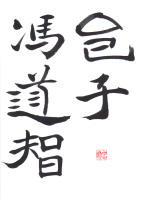 包子
馮道智